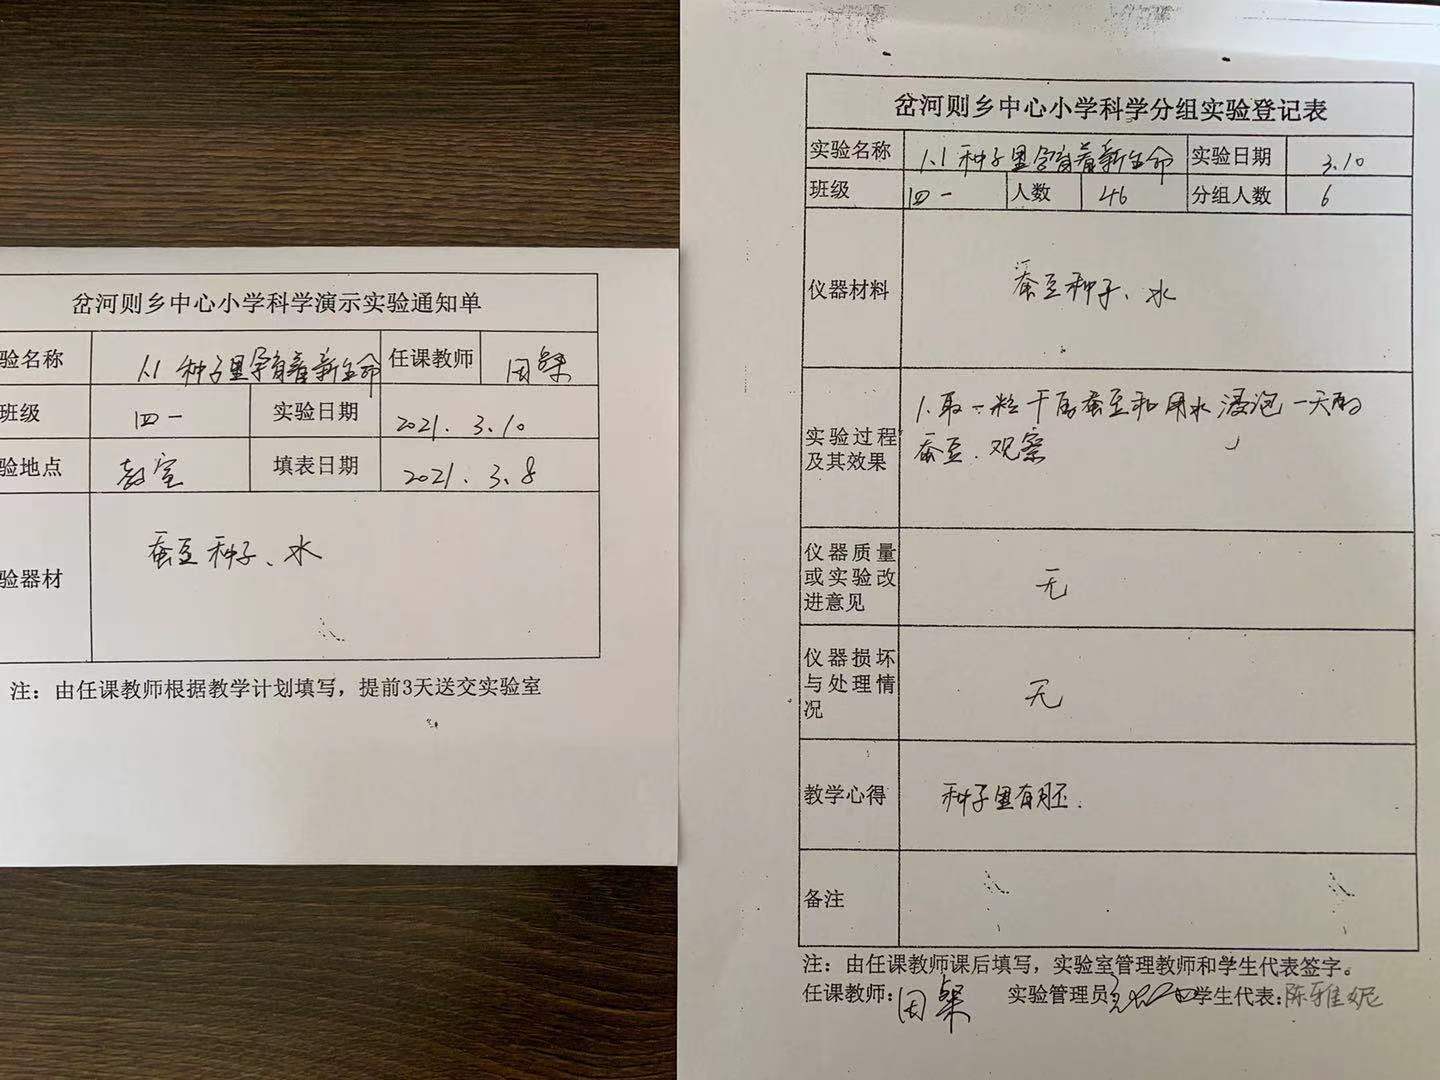 岔河则乡中心小学科学演示实验通知单
验名称 1.1 种子里孕育着新生命 任课教师 周粲
班级 四一 实验日期 2021.3.10
验地点 教室 填表日期 2021.3.8
验器材 蚕豆种子、水
注：由任课教师根据教学计划填写，提前3天送交实验室
岔河则乡中心小学科学分组实验登记表
实验名称 1.1 种子里孕育着新生命 实验日期 3.10
班级 四一 人数 46 分组人数 6
仪器材料 蚕豆种子、水
实验过程及其效果
1.取一粒干后蚕豆和用水浸泡一天的
蚕豆.观察
仪器质量
或实验改
进意见
无
仪器损坏
与处理情
况
无
教学心得 种子里有胚.
备注
注：由任课教师课后填写，实验室管理教师和学生代表签字。
任课教师: 周粲 实验管理员 学生代表:陈雅妮